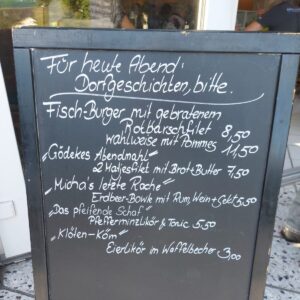 Für heute Abend:
Dorfgeschichten, bitte.
Fisch-Burger mit gebratenem
Rotbarschfilet 8,50
wahlweise mit Pommes 11,50
Gödekes Abendmahl"
2 Matjesfilet mit Brot+Butter 7,50
"Micha's letzte Rache"
Erdbeer-Bowle mit Rum, Wein+Sekt 5,50
"Das pfeifende Schaf"
Pfefferminzlikör & Tonic 5,50
"Klöten-Köm"
Eierlikör im Waffelbecher 3,00